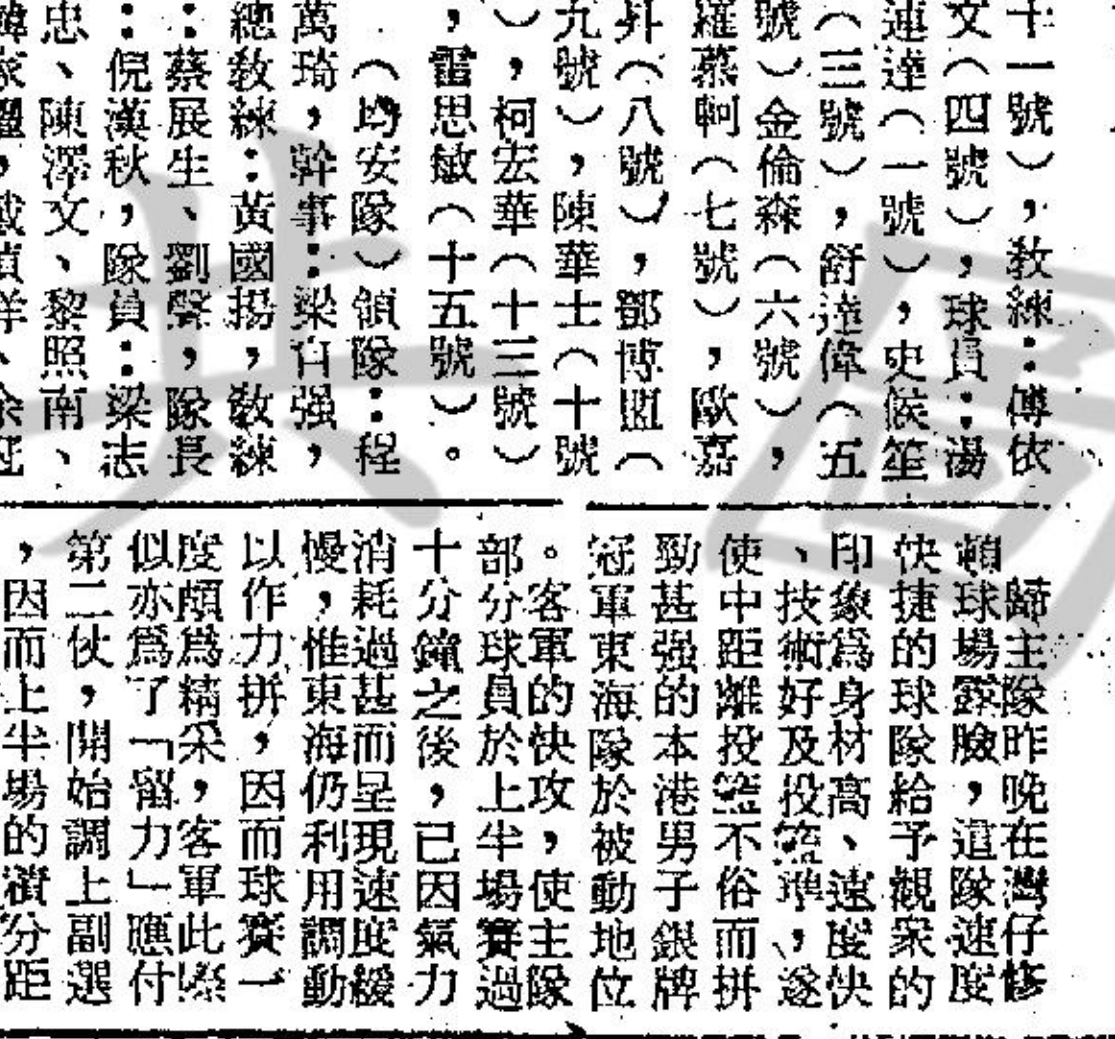 十一號），教練：傅依
文（四號），球員：湯
連達（一號），史侯笙
（三號），舒達偉（五
號）金倫森（六號），
羅慕軻（七號），歐嘉
昇（八號），鄧博盟（
九號），陳華士（十號
），柯宏華（十三號）
，雷思敏（十五號）。
（均安隊）領隊：程
萬琦，幹事：梁自强，
總教練：黃國揚，教練
：蔡展生、劉聲，隊長
：倪漢秋，隊員：梁志
忠、陳澤文、黎照南、
歸主隊昨晚在灣仔修
頓球場露臉，這隊速度
快捷的球隊給予觀衆的
印象為身材高、速度快
、技術好及投籃準，遂
使中距離投籃不俗而拼
勁甚强的本港男子銀牌
冠軍東海隊於被動地位
。客軍的快攻，使主隊
部分球員於上半場賽過
十分鐘之後，已因氣力
消耗過甚而呈現速度緩
慢，惟東海仍利用調動
以作力拼，因而球賽一
度頗為精采，客軍此際
似亦為了「留力」應付
第二伙，開始調上副選
，因而上半場的積分距